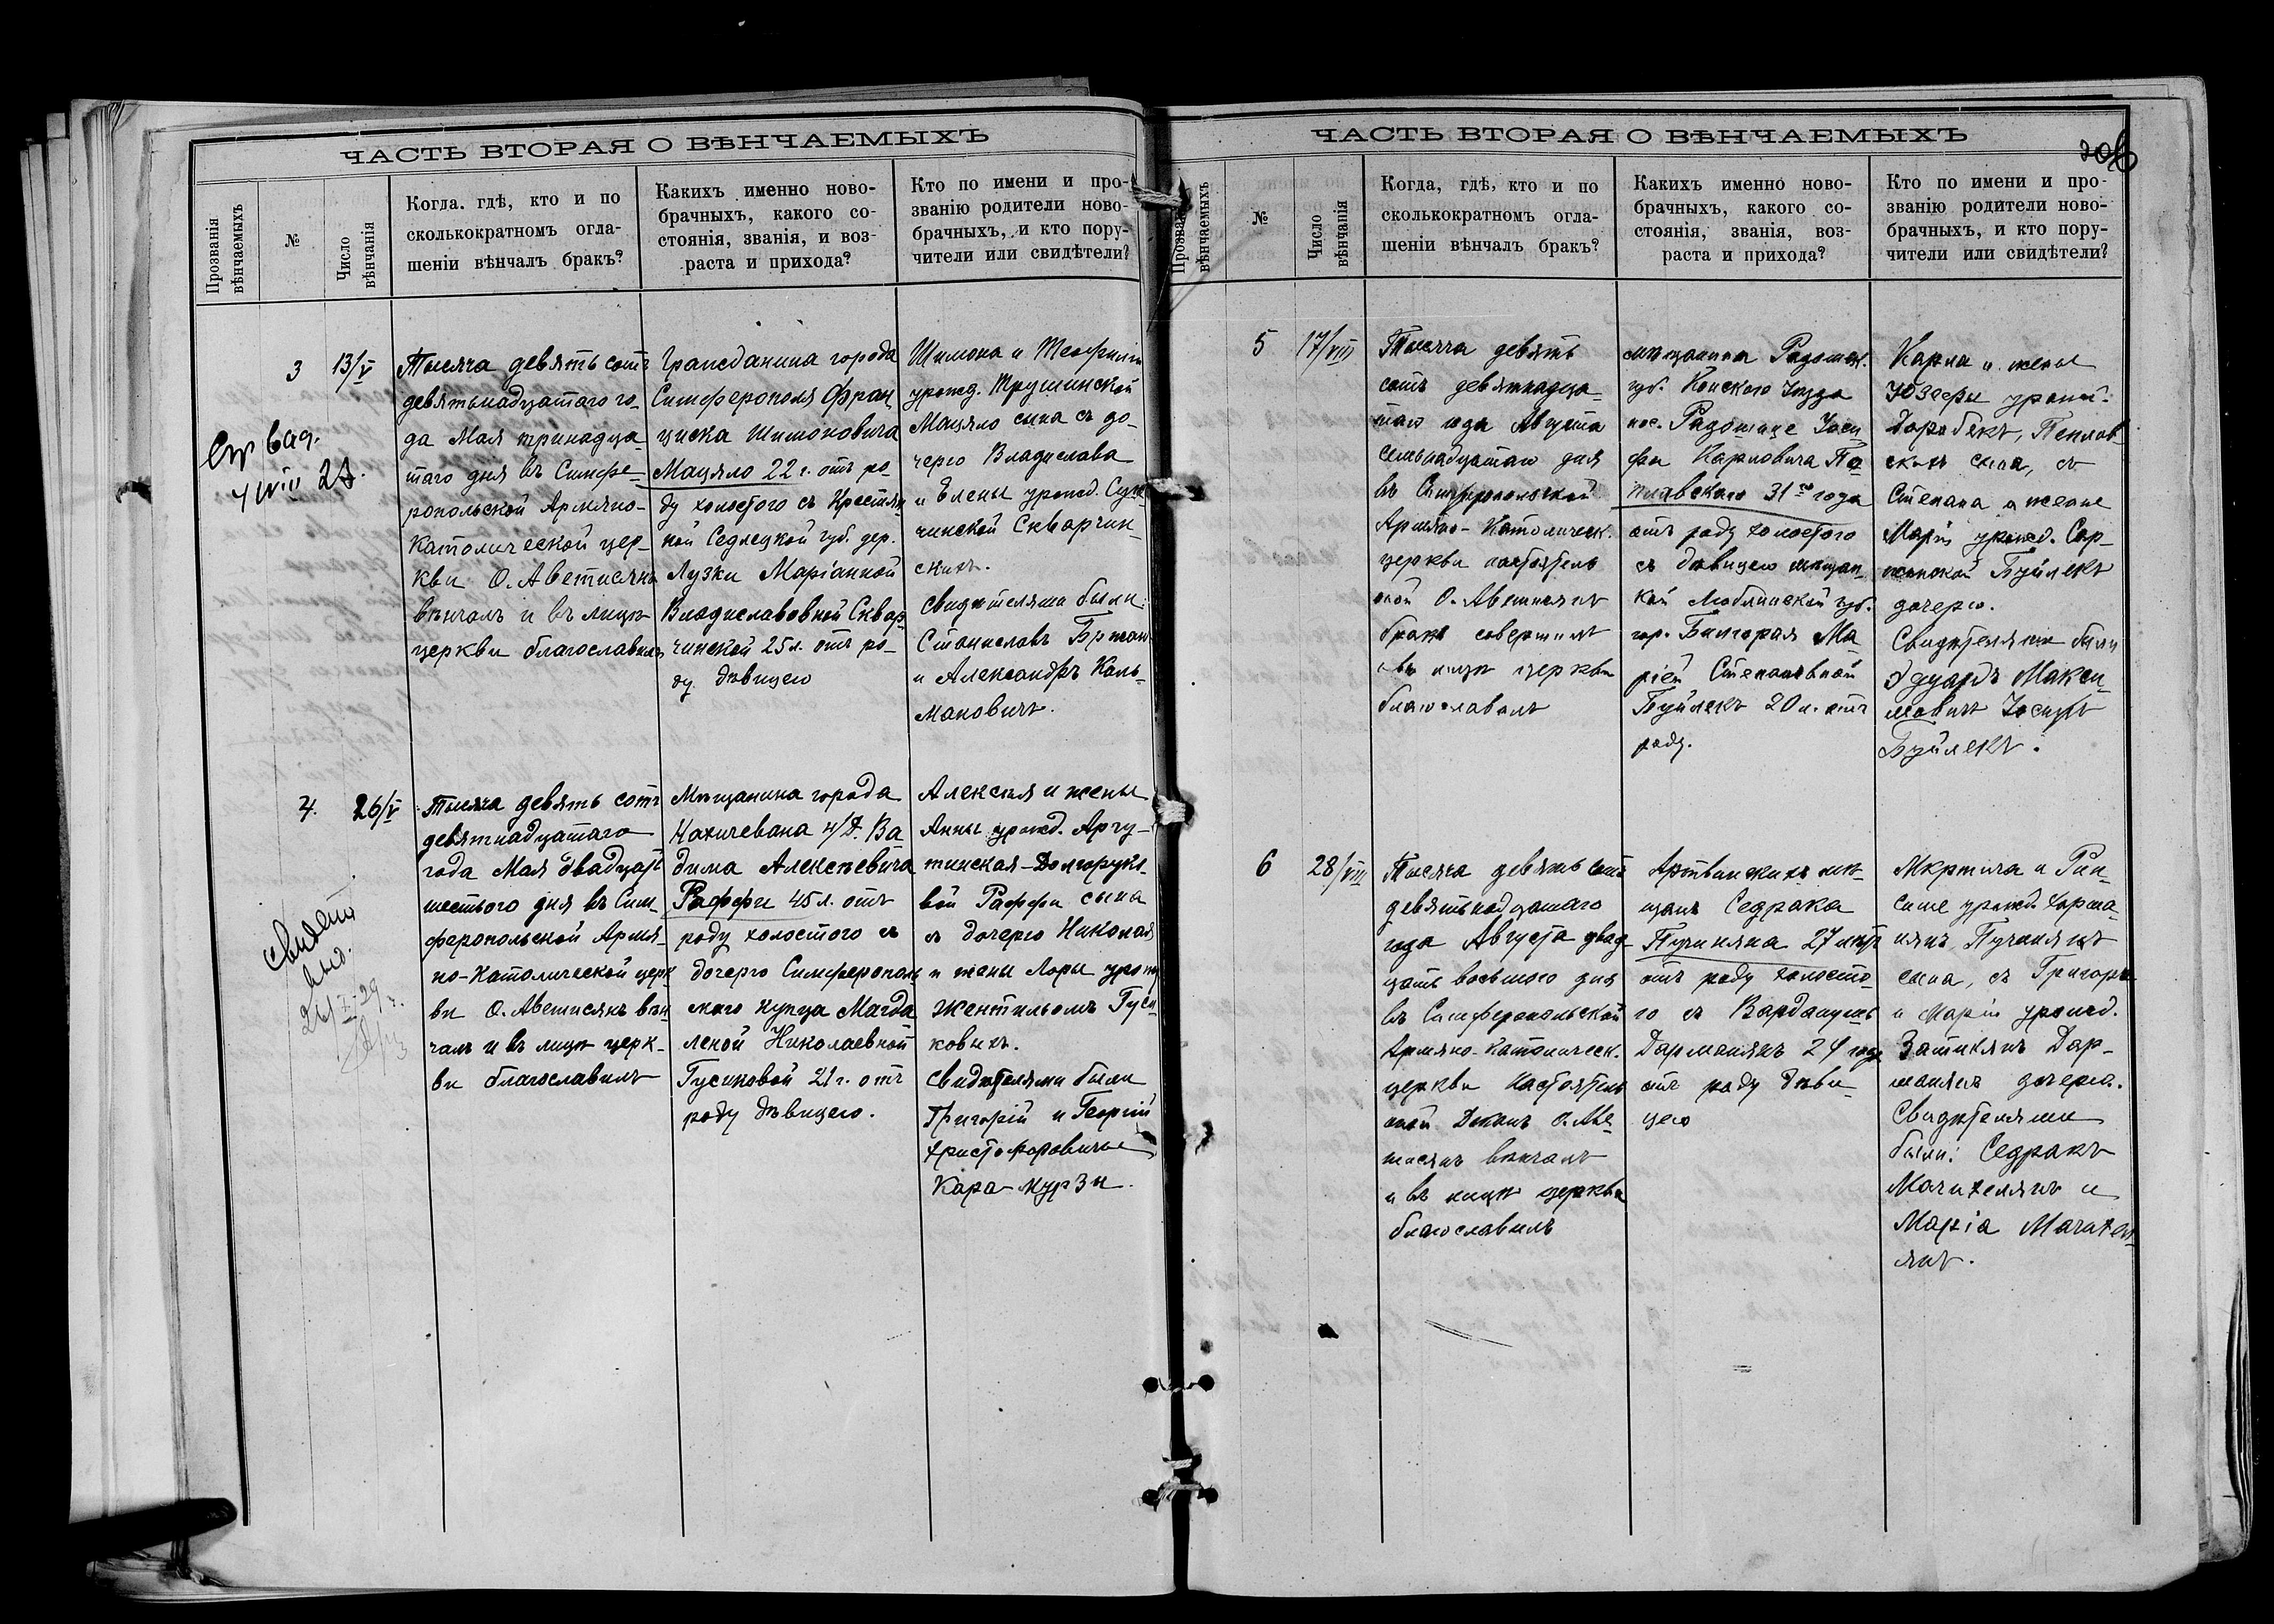 ЧАСТЬ ВТОРАЯ О ВѢНЧАЕМЫХЪ
Прозванія вѣнчаемыхъ
№
Число вѣнчанія
Когда. гдѣ, кто и по
сколькократномъ огла-
шеніи вѣнчалъ бракъ?
Какихъ именно ново-
брачныхъ, какого со-
стоянія, званія, и воз-
раста и прихода?
Кто по имени и про-
званію родители ново-
брачныхъ, и кто пору-
чители или свидѣтели?
3
13/V
Тысяча девятьсотъ
девятьнадцатаго го-
да Мая тринадца
таго дня въ Симфе-
ропольской Армяно-
Католической цер-
кви О. Аветисянъ
вѣнчалъ и въ лицѣ
церкви благославилъ
Гражданина города
Симферополя Фран
циска Шимоновича
Мацяло 22 г. отъ ро-
ду холостого съ Крестьян
кой Седлецкой губ. дер.
Лузки Маріанной
Владиславовной Сквар-
чинской 25 л. отъ ро-
ду дѣвицею
Шимона и
урожд. Трушинской
Мацяло сына съ до-
черью Владислава
и Елены урожд.
чинской Скварчин-
скихъ.
Свидѣтелями были:
Станиславъ
и Александръ Каль-
мановичъ.
4.
26/V
Тысяча девять сотъ
девятнадцатаго
года Мая двадцать
шестого дня въ Сим-
феропольской Армя-
но-Католической церк
ви О. Аветисянъ вѣн-
чалъ и въ лицѣ церк-
ви благославилъ
Мѣщанина города
Нахичевана н/Д. Ва
дима Алексѣевича
Раффи 45 л. отъ
роду холостого съ
дочерью Симферополь
скаго купца Магда
леной Николаевной
Гусиковой 21 г. отъ
роду дѣвицею.
Алексѣя и жены
Анны урожд. Аргу-
тинская-Долоруко-
вой Раффи сына
съ дочерью Николая
и жены Лоры урожд
Жентильомъ Гуси-
ковыхъ.
Свидѣтелями были
Григорій и Георгій
Христофоровичи
Кара-Мурзы.
ЧАСТЬ ВТОРАЯ О ВѢНЧАЕМЫХЪ
вѣнчаемыхъ
№
Число вѣнчанія
Когда, гдѣ, кто и по
сколькократномъ огла-
шеніи вѣнчалъ бракъ?
Какихъ именно ново-
брачныхъ, какого со-
стоянія, званія, воз-
раста и прихода?
Кто по имени и про-
званію родители ново-
брачныхъ, и кто пору-
чители или свидѣтели?
5
17/VIII
Тысяча девять
сотъ девятнадца-
таго года Августа
семьнадцатаго дня
въ Симферопольской
Армяно-Католическ.
церкви настоятель
оной О. Аветисянъ
бракъ совершилъ
и въ лицѣ церкви
благославилъ
мѣщанина Радомск.
губ. Конскаго Уѣзда
пос. Радошице Іоси
фа Карловича По
плавскаго 31го года
отъ роду холостого
съ дѣвицею мѣщан-
кой Люблинской губ.
гор. Билгорая Ма
ріей Степановной
Буйлекъ 20 л. отъ
роду.
Карла и жены
Юзефы урожд.
Поплав
скихъ сына, съ
Степана и жены
Маріи урожд.
Буйлекъ
дочерью.
Свидѣтелями были
Эдуардъ Макси-
мовичъ Іосифъ
Буйлекъ.
6
28/VIII
Тысяча девять сотъ
девятьнадцатаго
года Августа двад
цать восьмого дня
въ Симферопольской
Армяно-Католическ.
церкви Настоятель
оной Деканъ О. Аве
тисянъ вѣнчалъ
и въ лицѣ церкви
благославилъ
Артвинскихъ мѣ-
щанъ Седрака
Пучиняна 27 лѣтъ
отъ роду холосто-
го съ Вардануш
Дарманянъ 24 года
отъ роду дѣви
цею
Мкртыча и Рип-
симе урожд.
нянъ Пучинянъ
сына, съ Григорія
и Маріи урожд.
Затикянъ Дар-
манянъ дочерью.
Свидѣтелями
были: Седракъ
Мачихелянъ и
Марія Мачихел-
янъ.